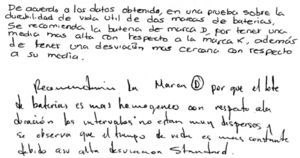 De acuerdo a los datos obtenido, en una prueba sobre la
durabilidad de vida util de dos marcas de baterias.
Se recomienda la bateria de marca D por tener una
media mas alta con respecto a la marca K, además
de tener una desviación mas cercana con respecto
a su media.
Recomendaria la Marca D por que el lote
de baterias es mas homogeneo con respeto a la
duración los intervalos no estan muy dispersos y
se observa que el tiempo de vida es mas constante
debido a su alta desviacion Standard.